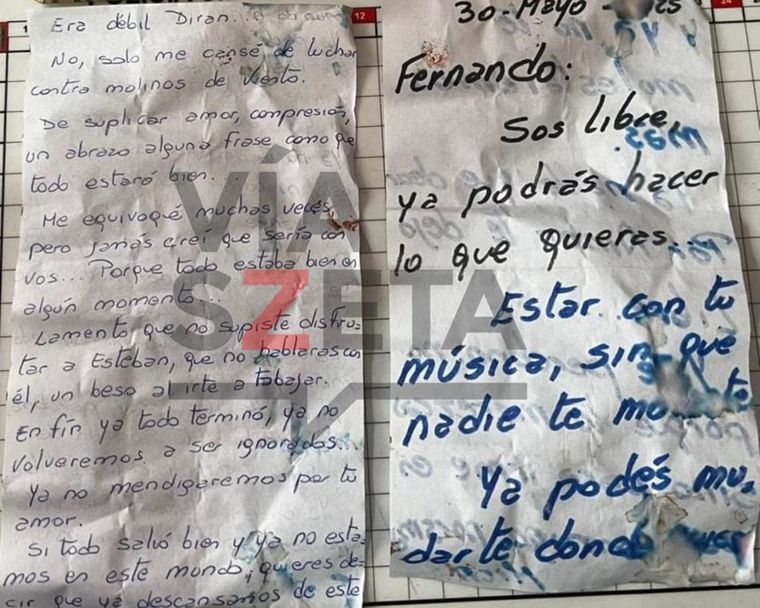 Era débil Diran...
No, solo me cansé de luchar
contra molinos de viento.
De suplicar amor, compresión,
un abrazo alguna frase como que
todo estará bien...
Me equivoqué muchas veces,
pero jamás creí que sería con
vos... Porque todo estaba bien en
algún momento...
Lamento que no supiste disfru-
tar a Esteban, que no hablaras con
él, un beso al irte a tabajar.
En fín ya todo terminó, ya no
volveremos a ser ignorados.
Ya no mendigaremos por tu
amor.
Si todo salvó bien y ya no esta-
mos en este mundo, quieres de-
cir que ya descansamos de este
30-Mayo
Fernando:
Sos libre,
ya podrás hacer
lo que quieras...
Estar con tu
música, sin que
nadie te
Ya podés mu-
darte donde
VÍA
SZETA
12
24